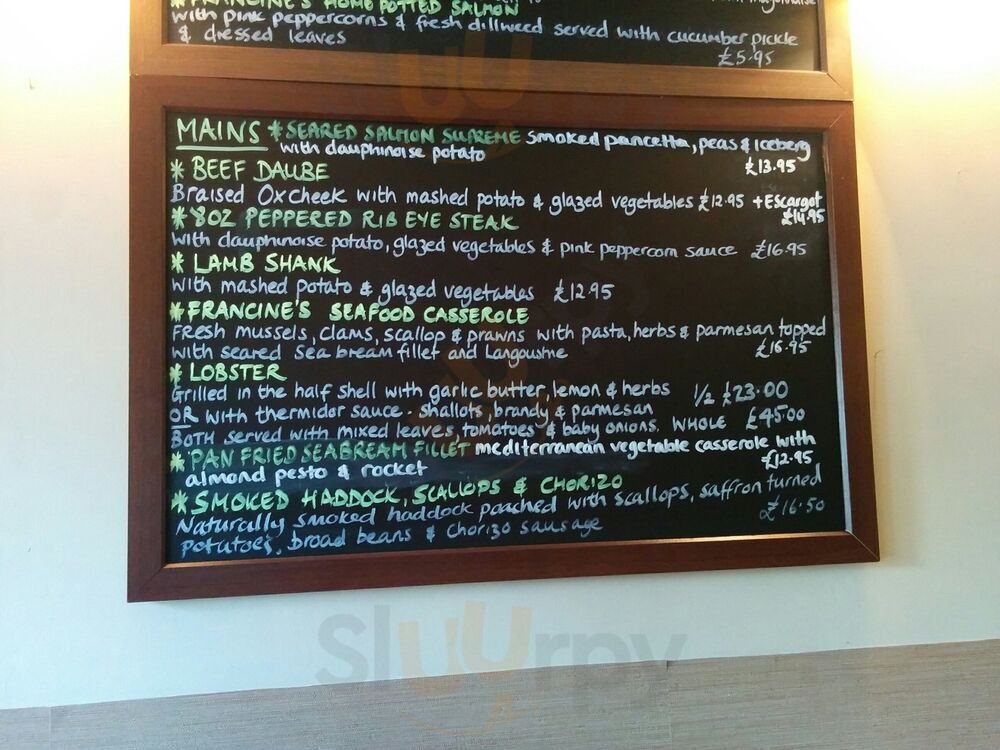 * FRANCINE'S HOME POTTED SALMON
with pink peppercorns & fresh dillweed served with cucumber pickle
& dressed leaves
£5.95
MAINS * SEARED SALMON SUPREME smoked pancetta, peas & iceberg
with dauphinoise potato £13.95
* BEEF DAUBE
Braised Ox cheek with mashed potato & glazed vegetables £12.95 + Escargot
£14.95
* 8OZ PEPPERED RIB EYE STEAK
with dauphinoise potato, glazed vegetables & pink peppercorn sauce £16.95
* LAMB SHANK
with mashed potato & glazed vegetables £12.95
* FRANCINE'S SEAFOOD CASSEROLE
Fresh mussels, clams, scallop & prawns with pasta, herbs & parmesan topped
with seared sea bream fillet and Langoustine £16.95
* LOBSTER
Grilled in the half shell with garlic butter, lemon & herbs 1/2 £23.00
OR with thermidor sauce - shallots, brandy & parmesan
BOTH served with mixed leaves, tomatoes & baby onions. WHOLE £45.00
* PAN FRIED SEABREAM FILLET mediterranean vegetable casserole with
almond pesto & rocket £12.95
* SMOKED HADDOCK, SCALLOPS & CHORIZO
Naturally smoked haddock poached with scallops, saffron turned
potatoes, broad beans & chorizo sausage £16.50
Sluurpy